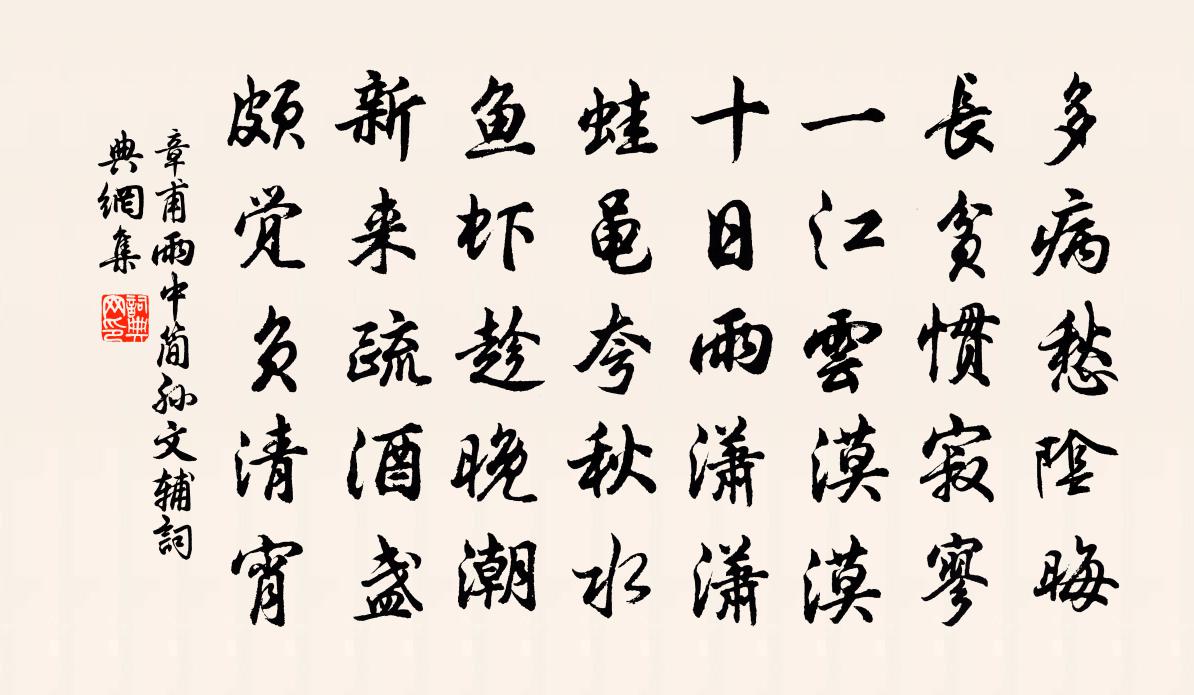 多病愁陰晦
長貧慣寂寥
一江雲漠漠
十日雨潇潇
蛙黾夸秋水
鱼虾趁晚潮
新来疏酒盏
颇觉负清宵
章甫雨中简孙文辅詞
典網集
詞典
网印